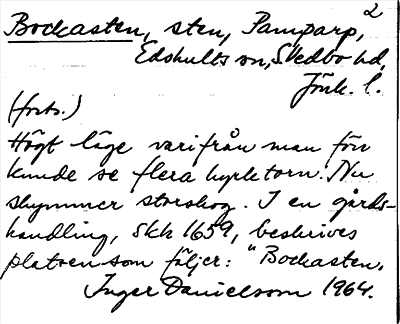 2
Bockasten, sten, Pamparp,
Edshults sn, Svedbo hd,
Jönk. l.
(forts.)
Högt läge varifrån man förr
kunde se flera kyrktorn. Nu
skymmer storskog. I en gårds-
handling, skh 1659, beskrives
platsen som följer: "Bockasten.
Inger Danielsson 1964.